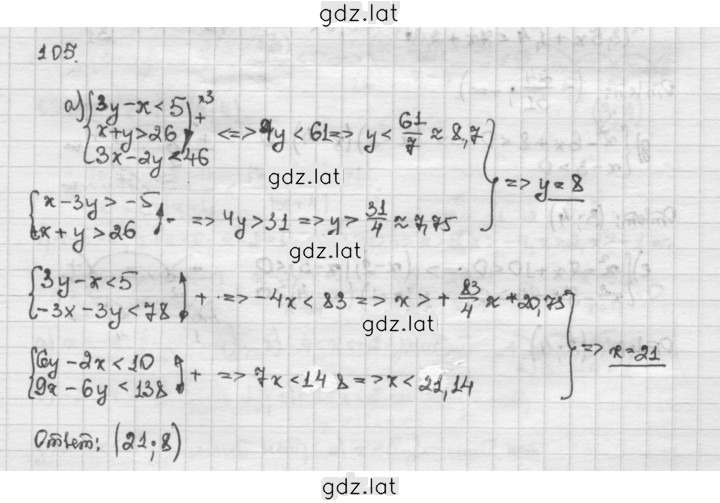 gdz.lat
105.
а) { 3y-x<5 |×3
x+y>26 + <=> 7y<61 => y< 61/7 ≈ 8,7
3x-2y<46
gdz.lat
} => y=8
{ x-3y>-5
x+y>26 - => 4y>31 => y> 31/4 ≈ 7,75
gdz.lat
{ 3y-x<5
-3x-3y<78 + => -4x<83 => x>+ 83/4 x +20,75
gdz.lat
} => x=21
{ 6y-2x<10
9x-6y<138 + => 7x<148 => x<21,14
Ответ: (21;8)
gdz.lat